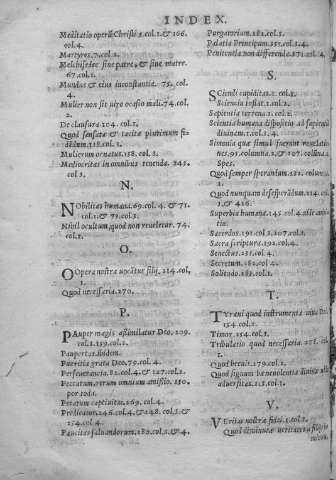 INDEX.
Meditatio operũ Christi 2.col.1.& 106.
col.4.
Martyres.7.col.2.
Melchisedec sine patre, & sine matre.
67.col.1.
Mundus & eius inconstantia. 75. col.
4.
Mulier non sit iuge ocasio mali.74.col.
2.
De clausura.204.col.1.
Quod sensatæ & tacitæ plurimum
col.1.
Mulierum ornatus.158.col.
Mediocritas in omnibus tenenda. 245.
col.1.
N.
NObilitas humana.69.col. 4. & 71.
col.1.& 72.col.3.
Nihil ocultum, quod non reueletur. 74.
col.1.
O.
OOpera nostra uocãtur filij. 214.col.
1.
Quod necessaria.270.
P.
PAuper magis assimilatur Deo.209.
col.1.259.col.2.
Paupertas ibidem.
Pueritia grata Deo.79.col.4.
Perseuerantia.82.col.4. & 127.col.1.
Peccatum.rerum omnium amissio. 150.
per tota.
Petrum captiuitat.169.col.4.
Predicator.246.col.4.& 248. col.3.&
254.col.4.
Paucitas saluandorum.182.col.1.& 4.
Purgatorium.282.col.3.
Palatia Principum.251.col.3.4.
Penitentia non differenda.271.col.4.
S.
SCiendi cupiditas.1.col.1.
Scientia inflat.1.col.2.
Sapientia terrena.2.col.1.
Scientia humana dispositio ad sapientiã
diuinam.1.col. 4.
Sionitia quæ simul fuerunt reuelatio
nes.95.columna.2.& 107.collũna.
Spes.
Quod semper sperandum.121. column.
1.
Quod nunquam desesperãdum.114.col.
3.& 416.
Superbia humana.145.col.4.alit anti
co.
Sacerdos.191.col.2.207.col.1.
Sacra scriptura.192.col.4.
Senectus.251.col.4.
Secretum.282.col.4.
Solitudo.283.col.1.
T.
TYrani quod instrumenta
254.col.1.
Timor.254.col.1.
Tribulatio quod necessaria. 278. col.
Quod breuis.279.col.1.
Quod signum beneuolentiæ diuinæ
aduersitas.215.col.1.
V.
VEritas nostræ fidei.1.col.1.
Quod diuinarũ ueritatũ